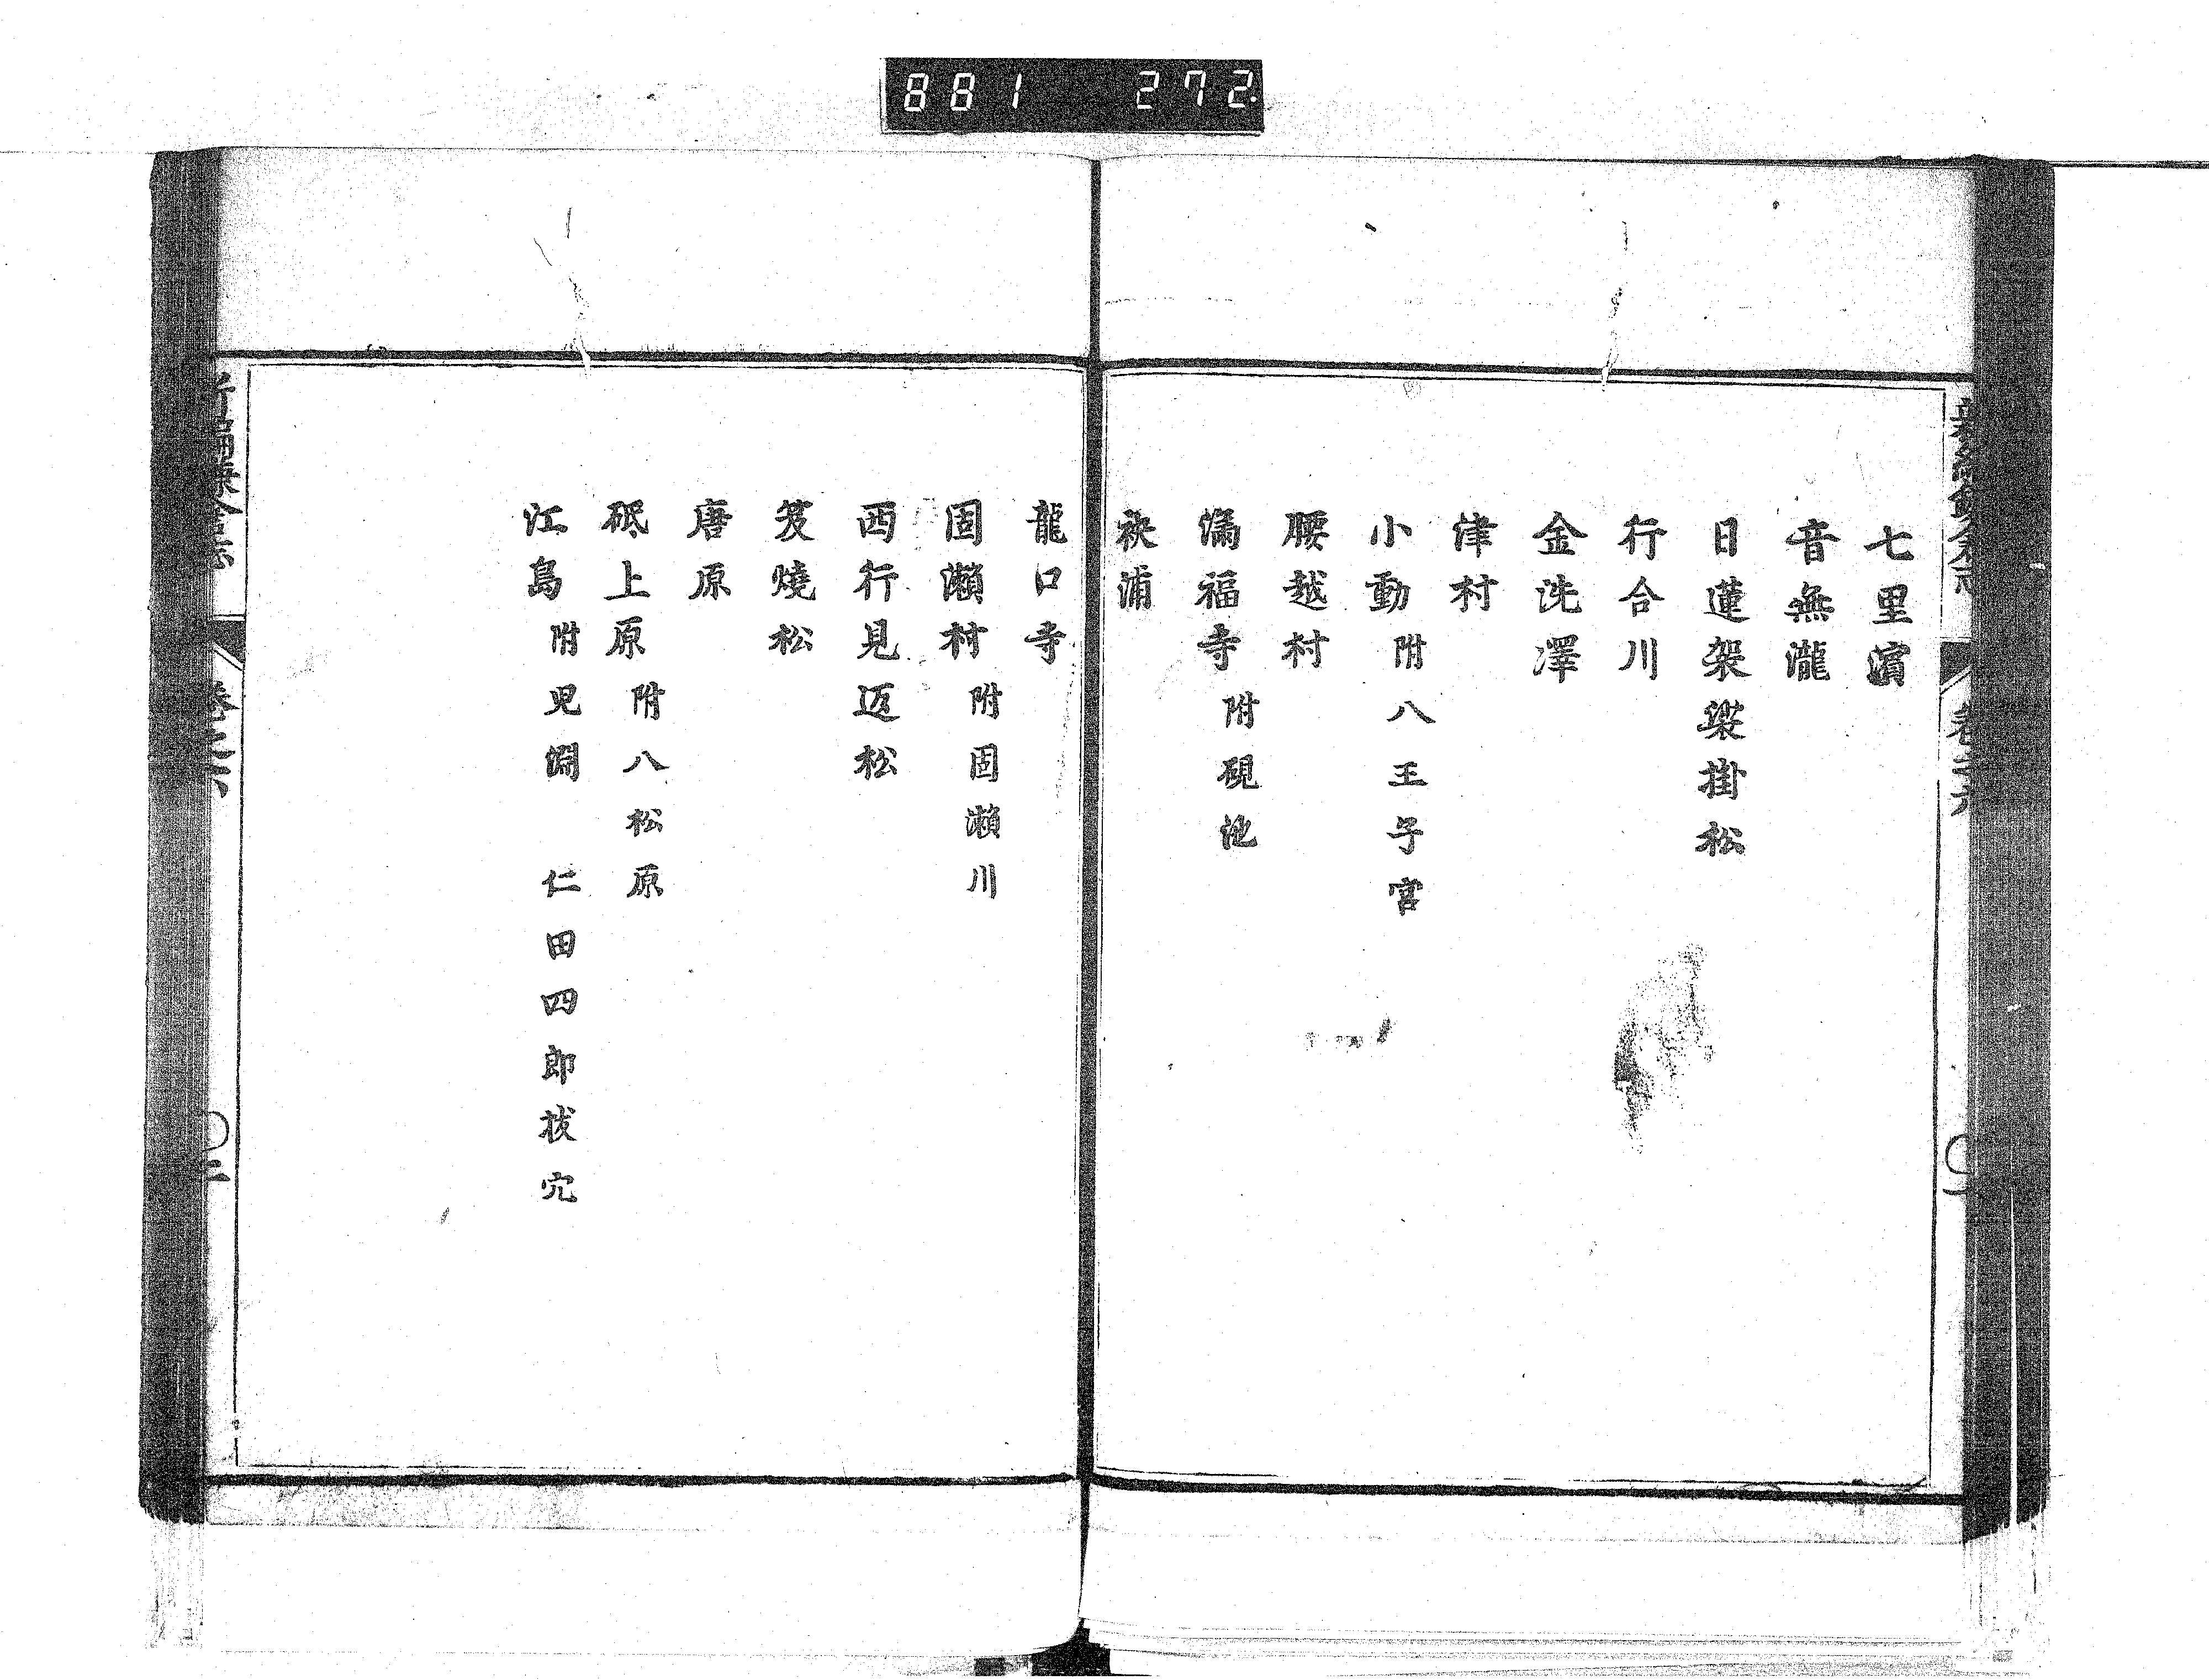 881 272.
七里濱
音無瀧
日蓮袈裟掛松
行合川
金洗澤
津村
小動 附八王子宮
腰越村
滿福寺 附硯池
袂浦
龍口寺
固瀬村 附固瀬川
西行見返松
笈燒松
唐原
砥上原 附八松原
江島 附児淵 仁田四郎拔穴
卷之六
〇二